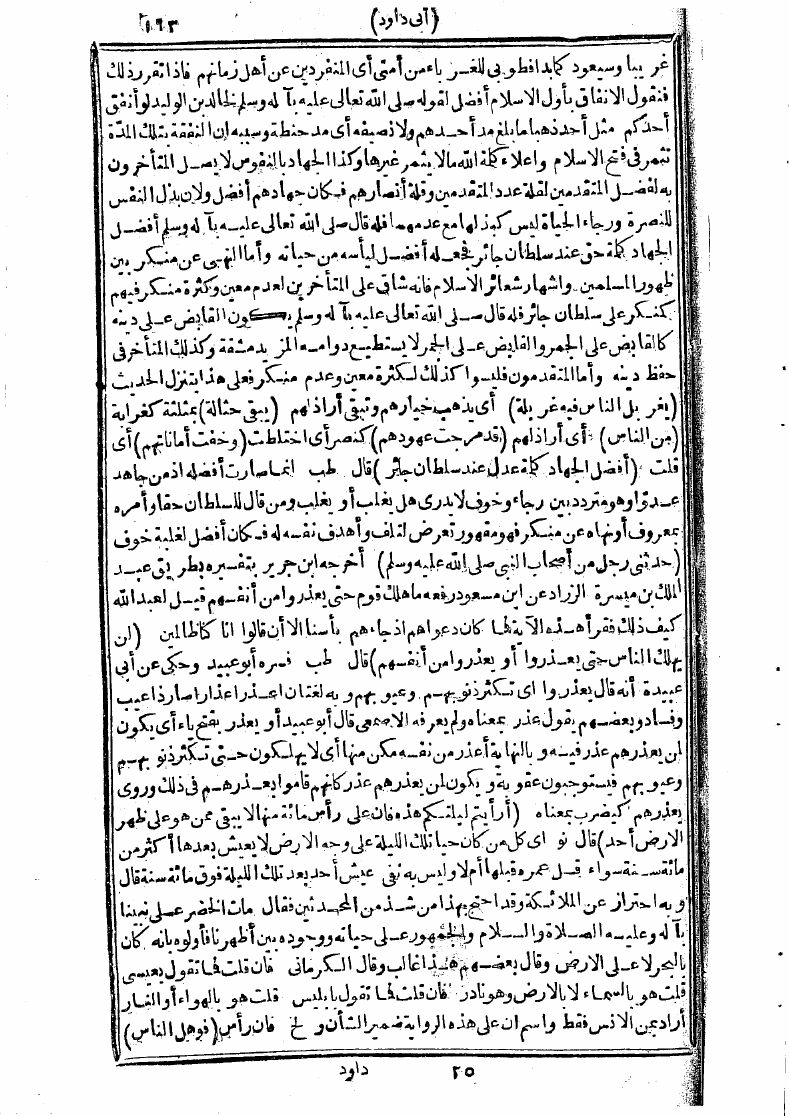 (أبى داود) ١٦٣
غريبا وسيعود كما بدا فطوبى للغرباء من أمتى أى المنفردين عن أهل زمانهم فاذا تقرر ذلك
فنقول الانفاق بأول الاسلام أفضل لقوله صلى الله تعالى عليه بآله وسلم لخالد بن الوليد لو أنفق
أحدكم مثل أحد ذهبا ما بلغ مد أحدهم ولا نصيفه أى مد حنطة وسببه ان النفقة بتلك المدة
تثمر فى فتح الاسلام واعلاء كلمة الله مالا يثمر غيرها وكذا الجهاد بالنفوس لا يصل المتأخرون
به لفضل المتقدمين لقلة عدد المتقدمين وقلة أنصارهم فكان جهادهم أفضل ولان بذل النفس
للنصرة ورجاء الحياة ليس كبذلها مع عدمهما فله قال صلى الله تعالى عليه بآله وسلم أفضل
الجهاد كلمة حق عند سلطان جائر فجعله أفضل ليأسه من حياته وأما النهى عن منكر بين
ظهور المسلمين واشهار شعائر الاسلام فانه شاق على المتأخرين لعدم معين وكثرة منكر فيهم
كمنكر على سلطان جائر فله قال صلى الله تعالى عليه بآله وسلم يكون القابض على دينه
كالقابض على الجمر والقابض على الجمر لا يستطيع دوامه لمزيد مشقة وكذلك المتأخر فى
حفظ دينه وأما المتقدمون فليسوا كذلك لكثرة معين وعدم منكر فعلى هذا يتنزل الحديث
(يغربل الناس فيه غربلة) أى يذهب خيارهم وتبقى أراذلهم (يبقى حثالة) بمثلثة كغرابة
(من الناس) أى أراذلهم (قد مرجت عهودهم) كنصر أى اختلطت (وخفت أماناتهم) أى
قلت (أفضل الجهاد كلمة عدل عند سلطان جائر) قال طب انما صارت أفضله اذ من جاهد
عدوا وهو متردد بين رجاء وخوف لا يدرى هل يغلب أو يغلب ومن قال للسلطان حقا وأمره
بمعروف أو نهاه عن منكر فهو مقهور تعرض لتلف وأهدف نفسه له فكان أفضل لغلبة خوف
(حدثنى رجل من أصحاب النبى صلى الله عليه وسلم) أخرجه ابن جرير بتفسيره بطريق عبد
الملك بن ميسرة الزراد عن ابن مسعود رفعه ما هلك قوم حتى يعذروا من أنفسهم قيل لعبد الله
كيف ذلك فقرأ هذه الآية فما كان دعواهم اذ جاءهم بأسنا الا أن قالوا انا كنا ظالمين (لن
يهلك الناس حتى يعذروا أو يعذروا من أنفسهم) قال طب فسره أبو عبيد وحكى عن أبى
عبيدة أنه قال يعذروا اى تكثر ذنوبهم وعيوبهم وبه لغتان اعذر اعذارا صار ذا عيب
وفساد وبعضهم يقول عذر بمعناه ولم يعرفه الاصمعى قال أبو عبيد أو يعذر بفتح ياء أى يكون
لمن يعذرهم عذر فيه وبالنهاية أعذر من نفسه مكن منها أى لا يهلكون حتى تكثر ذنوبهم
وعيوبهم فيستوجبون عقوبة ويكون لمن يعذرهم عذر كانهم قاموا بعذرهم فى ذلك وروى
يعذرهم كيضرب بمعناه (أرأيتم ليلتكم هذه فان على رأس مائة منها لا يبقى ممن هو على ظهر
الارض أحد) قال نو اى كل من كان حيا تلك الليلة على وجه الارض لا يعيش بعدها أكثر من
مائة سنة سواء قل عمره قبلها أم لا وليس به نفى عيش أحد بعد تلك الليلة فوق مائة سنة قال
وبه احتراز عن الملائكة وقد احتج بهذا من شذ من المحدثين فقال مات الخضر على نبينا
بآله وعليه الصلاة والسلام والجمهور على حياته ووجوده بين أظهرنا فأولوه بانه كان
بالبحر لا على الارض وقال بعضهم هذا غالب وقال الكرمانى فان قلت فما تقول بعيسى
قلت هو بالسماء لا بالارض وهو نادر فان قلت فما تقول بابليس قلت هو بالهواء أو النار
أراد بمن الانس فقط واسم ان على هذه الرواية ضمير الشأن و لخ فان رأس (فوهل الناس)
٢٥ داود